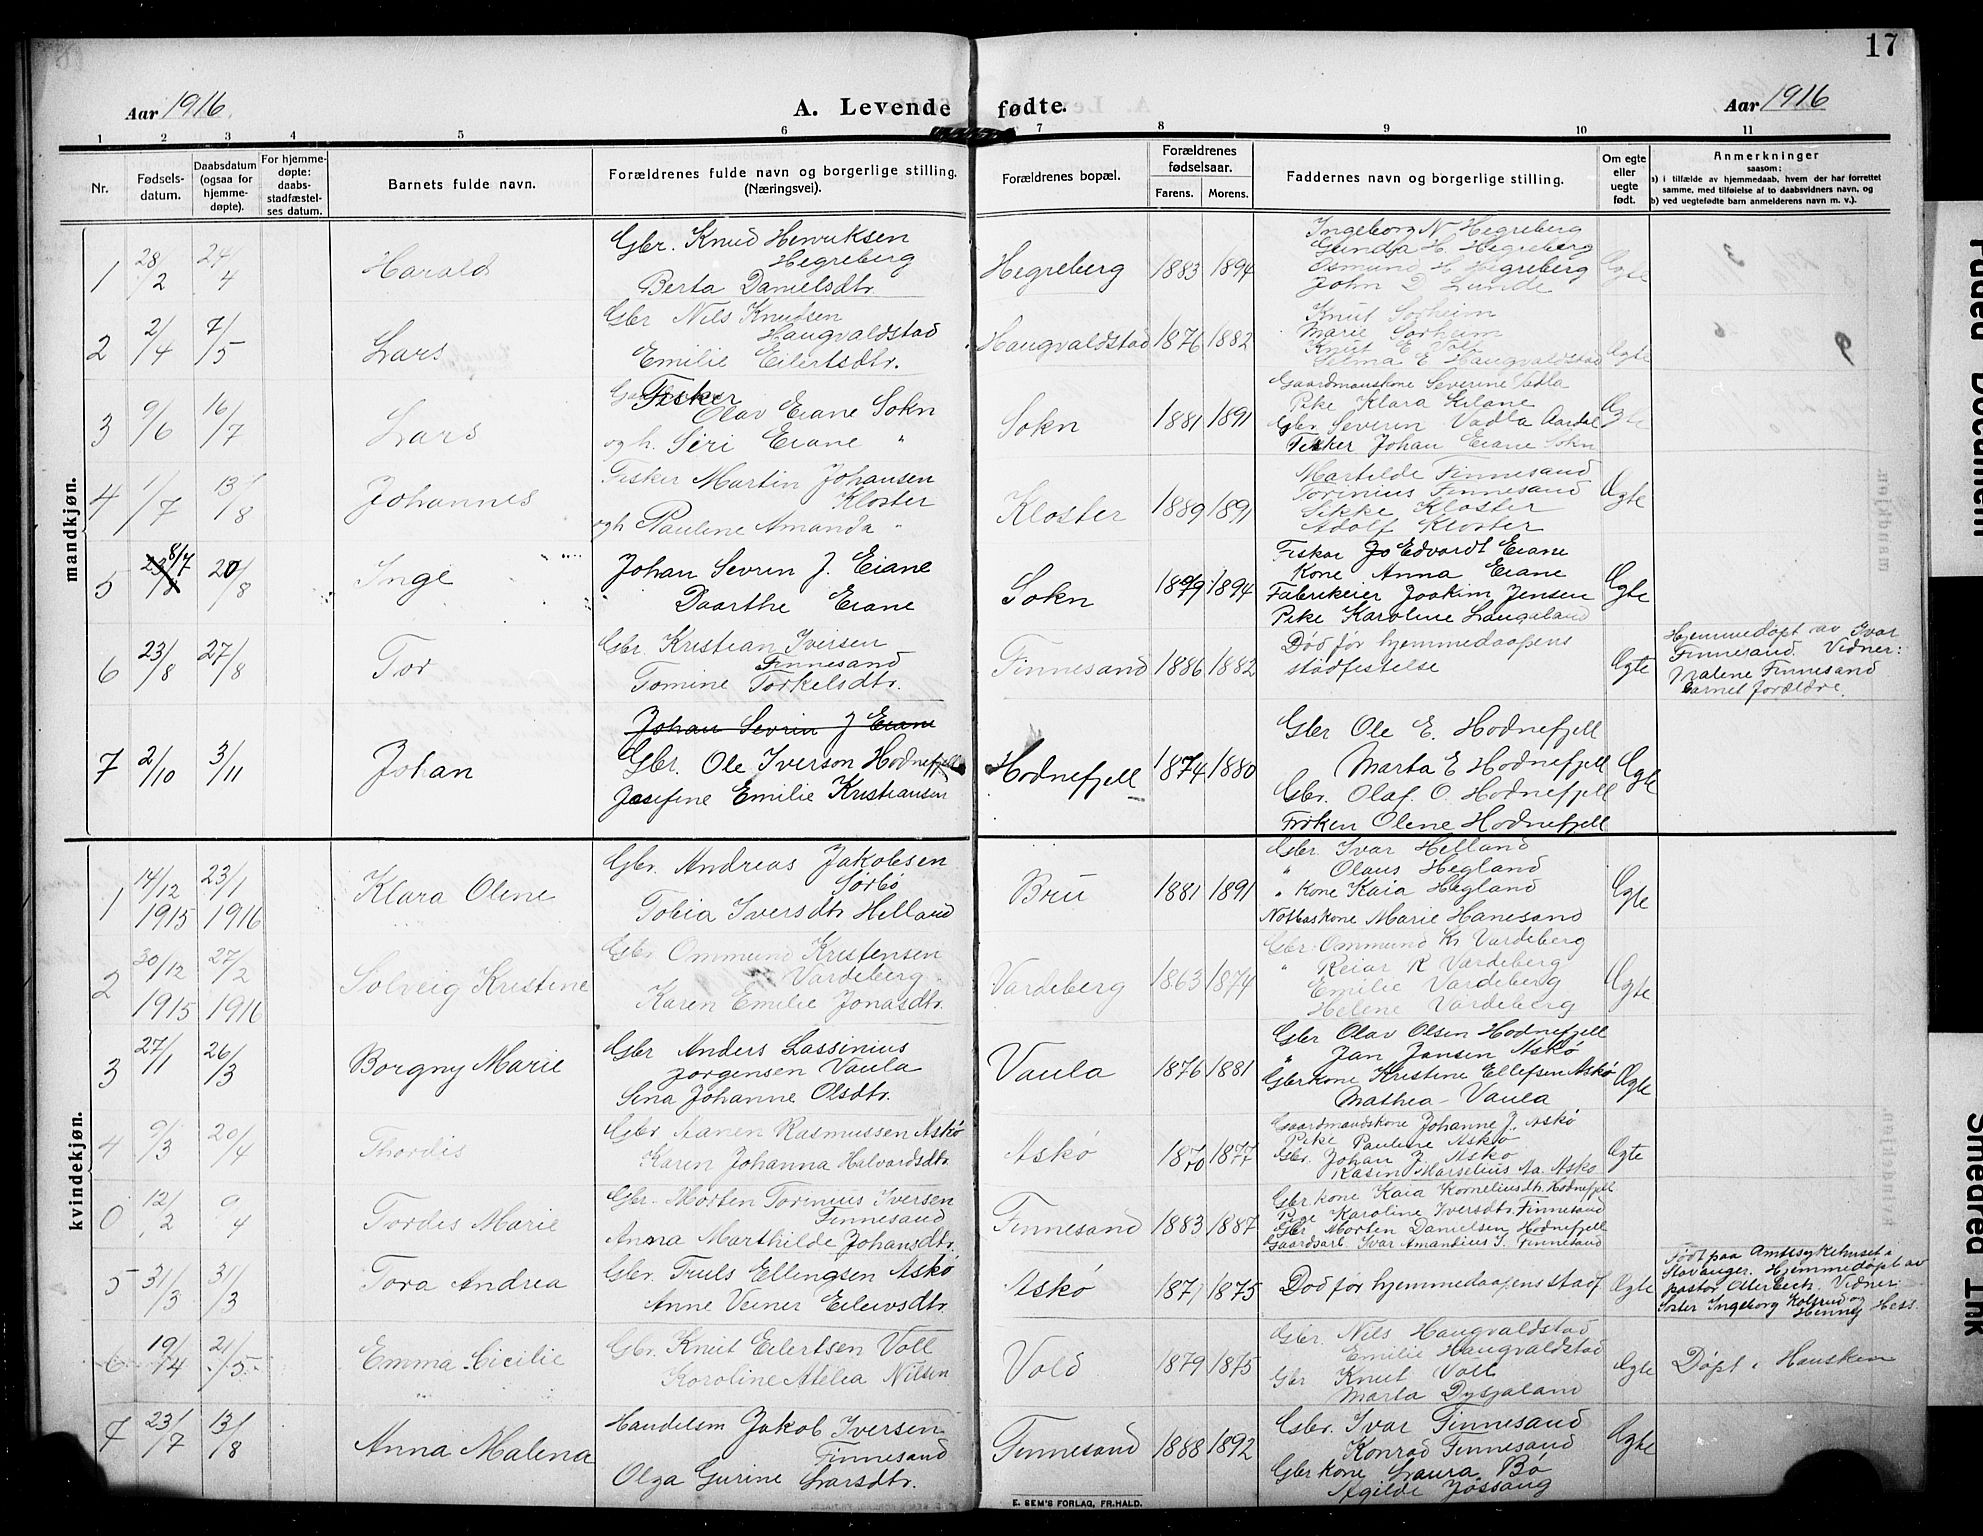 17
Aar 1916.
A. Levende fødte.
Aar 1916
1 2 3 4 5 6 7 8 9 10 11
Nr.
Fødsels-
datum.
Daabsdatum
(ogsaa for
hjemme-
døpte).
For hjemme-
døpte:
daabs-
stadfæstel-
ses datum.
Barnets fulde navn.
Forældrenes fulde navn og borgerlige stilling.
(Næringsvei).
Forældrenes bopæl.
Forældrenes
fødselsaar.
Farens. Morens.
Faddernes navn og borgerlige stilling.
Om egte
eller
uegte
født.
Anmerkninger
saasom:
a) i tilfælde av hjemmedaab, hvem der har forrettet
samme, med tilføielse af to daabsvidners navn, og
b) ved uegtefødte barn anmelderens navn m. v.).
mandkjøn.
1 28/2 24/4 Harald
Gbr. Knud Henriksen
Hegreberg
Berta Danielsdtr.
Hegreberg 1883 1894
Ingeborg N Hegreberg
Gunda H. Hegreberg
Osmund H Hegreberg
John D Lunde
Egte
2 2/4 7/5 Lars
Gbr Nils Knudsen
Haugvaldstad
Emilie Eilertsdtr.
Haugvaldstad 1876 1882
Knut Sorheim
Marie Sorheim
Knut E Voll
Selma E Haugvaldstad
Egte
3 9/6 16/7 Lars
Fisker
Olav Eiane Sokn
og h. Siri Eiane "
Sokn 1881 1891
Gaardmanskone Severine Vadla
Pike Klara Eiane
Gbr Severin Vadla Aardal
Fisker Johan Eiane Sokn
Egte
4 1/7 13/8 Johannes
Fisker Martin Johansen
Kloster
og h Pauline Amanda "
Kloster 1889 1891
Martilde Finnesand
Torinius Finnesand
Sikke Kloster
Adolf Kloster
Egte
5 8/7 20/8 Inge
Johan Sevrin J. Eiane
Daarthe Eiane
Sokn 1879 1894
Fisker Jo Edvardt Eiane
Kone Anna Eiane
Fabrikeier Joakim Jensen
Pike Karoline Langeland
Egte
6 23/8 27/8 Tor
Gbr. Kristian Iversen
Finnesand
Tomine Torkelsdtr.
Finnesand 1886 1882
Død før hjemmedaapens
stadfestelse
Egte
Hjemmedøpt av Ivar
Finnesand. Vidner:
Malene Finnesand
barnet forældre.
Johan Sevrin J Eiane
7 2/10 3/11 Johan
Gbr. Ole Iverson Hodnefjell
Josefine Emilie Kristiansen
Hodnefjell 1874 1880
Gbr Ole E. Hodnefjell
Marta E Hodnefjell
Gbr. Olaf O. Hodnefjell
Frøken Olene Hodnefjell
Egte
kvindekjøn.
1 14/12 1915 23/1 1916 Klara Olene
Gbr. Andreas Jakobsen
Sørbø
Tobia Iversdtr Helland
Bru 1881 1891
Gbr. Ivar Helland
" Olaus Hegland
" Kone Kaia Hegland
Notbaskone Marie Hanesand
Egte
2 30/12 1915 27/2 1916 Solveig Kristine
Gbr Ommund Kristensen
Vardeberg
Karen Emilie Jonasdtr.
Vardeberg 1863 1874
Gbr. Ommund Kr Vardeberg
" Reiar R Vardeberg
Emilie Vardeberg
Helene Vardeberg
Egte
3 27/1 26/3 Borgny Marie
Gbr Anders Lassinius
Jorgensen Vaula
Sina Johanne Olsdtr.
Vaula 1876 1881
Gbr Olav Olsen Hodnefjell
" Jan Jansen Askø
Gbrkone Kristine Ellefsen Askø
Mathea Vaula
Egte
4 9/3 20/4 Thordis
Gbr. Aanen Rasmussen Askø
Karen Johanna Halvardsdtr
Askø 1870 1877
Gaardmandskone Johanne J. Askø
Pike Pauline Askø
Gbr. Johan J. Askø
Rasin Marselius Aa. Askø
Egte
0 12/2 9/4 Tordis Marie
Gbr. Morten Torinius Iversen
Finnesand
Anna Marthilde Johansdtr.
Finnesand 1883 1887
Gbr kone Kaia Korneliusdtr. Hodnefjell
Pige Karoline Iversdtr. Finnesand
Gbr Morten Danielsen Hodnefjell
Gaardsarb. Ivar Amandius I. Finnesand
5 31/3 31/3 Tora Andrea
Gbr. Truls Ellingsen Askø
Anne Veiner Eilevsdtr.
Askø 1871 1875
Død før hjemmedaapens stadf.
Egte
Født paa Amtssykehuset i
Stavanger. Hjemmedøpt av
pastor Osterbech. Vidner:
Søster Ingeborg Kolsrud og
Henny Hess.
6 19/4 21/5 Emma Cicilie
Gbr. Knut Eilertsen Voll
Koroline Atelia Nilsen
Vold 1879 1875
Gbr. Nils Haugvaldstad
Emilie Haugvaldstad
Gbr Knut Voll
Marta Dysjaland
Egte
Døpt i Hausken
7 23/7 13/8 Anna Malena
Handelsm Jakob Iversen
Finnesand
Olga Gurine Larsdtr.
Finnesand 1888 1892
Gbr. Ivar Finnesand
Konrad Finnesand
Gbr kone Laura Bø
Agilde Jøssang
Egte
E. SEM'S FORLAG, FR.HALD.
Faded Document
Smeared Ink